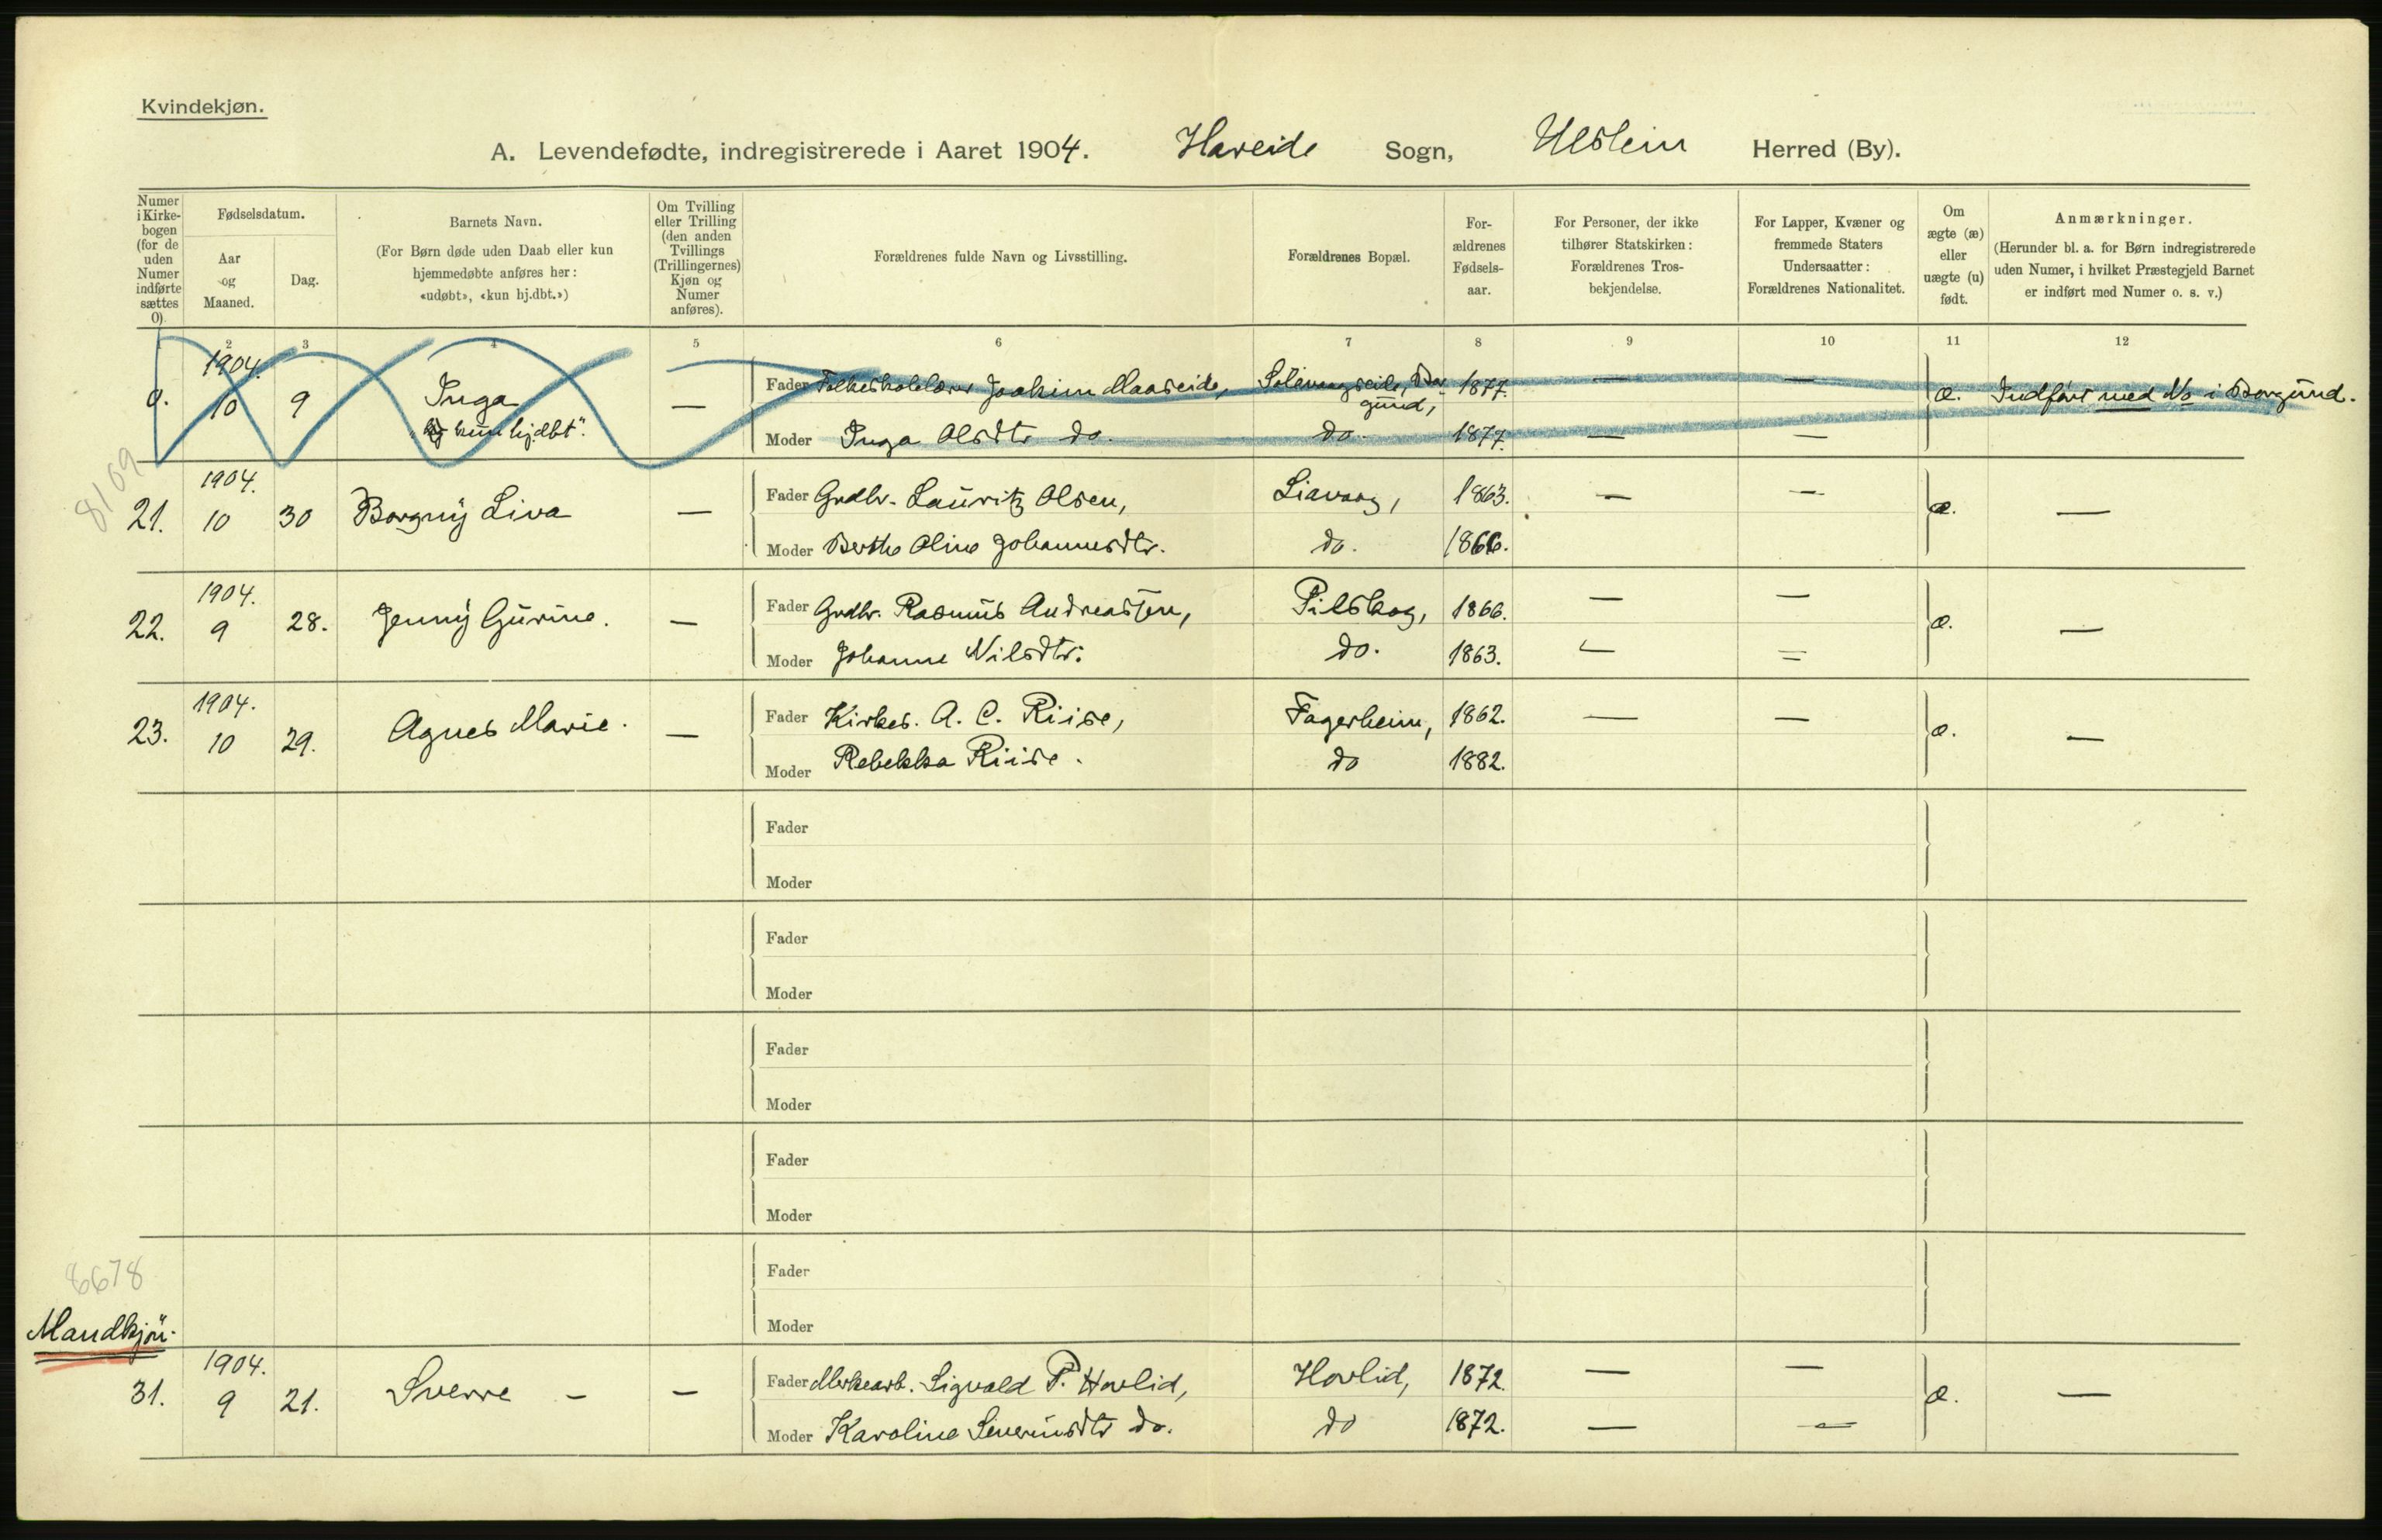 Kvindekjøn.
A. Levendefødte, indregistrerede i Aaret 1904. Hareide Sogn, Ulstein Herred (By).
Numer i Kirkebogen (for de uden Numer indførte sættes 0).
Fødselsdatum.
Aar og Maaned.
Dag.
Barnets Navn.
(For Børn døde uden Daab eller kun
hjemmedøbte anføres her:
«udøbt», «kun hj.dbt.»)
Om Tvilling
eller Trilling
(den anden
Tvillings
(Trillingernes)
Kjøn og
Numer
anføres).
Forældrenes fulde Navn og Livsstilling.
Forældrenes Bopæl.
For-
ældrenes
Fødsels-
aar.
For Personer, der ikke
tilhører Statskirken:
Forældrenes Tros-
bekjendelse.
For Lapper, Kvæner og
fremmede Staters
Undersaatter:
Forældrenes Nationalitet.
Om
ægte (æ)
eller
uægte (u)
født.
Anmærkninger.
(Herunder bl. a. for Børn indregistrerede
uden Numer, i hvilket Præstegjeld Barnet
er indført med Numer o. s. v.)
1 2 3 4 5 6 7 8 9 10 11 12
0. 1904. 10 9 Inga "kun hjdbt". —
Fader Folkeskolelærer Joakim Maaseide, Solevaagseide, Borgund, 1877. — —
æ. Indført med No i Borgund.
Moder Inga Olsdtr do. do. 1877. — —
8109
21. 1904. 10 30 Borgny Liva —
Fader Grdbr. Lauritz Olsen, Liavaag, 1863. — —
æ. —
Moder Berthe Oline Johannesdtr. do. 1866.
22. 1904. 9 28. Jenny Gurine. —
Fader Grdbr. Rasmus Andreassen, Pilskog, 1866. — —
æ. —
Moder Johanne Nilsdtr. do. 1863. — =
23. 1904. 10 29. Agnes Marie. —
Fader Kirkes. A. C. Riise, Fagerheim, 1862. — —
æ. —
Moder Rebekka Riise. do 1882.
Fader
Moder
Fader
Moder
Fader
Moder
Fader
Moder
8678
Fader
Moder
Mandkjön.
31. 1904. 9 21. Sverre — —
Fader Merkearb. Sigvald P. Hovlid, Hovlid, 1872. — —
æ. —
Moder Karoline Severinsdtr do. do 1872. — —